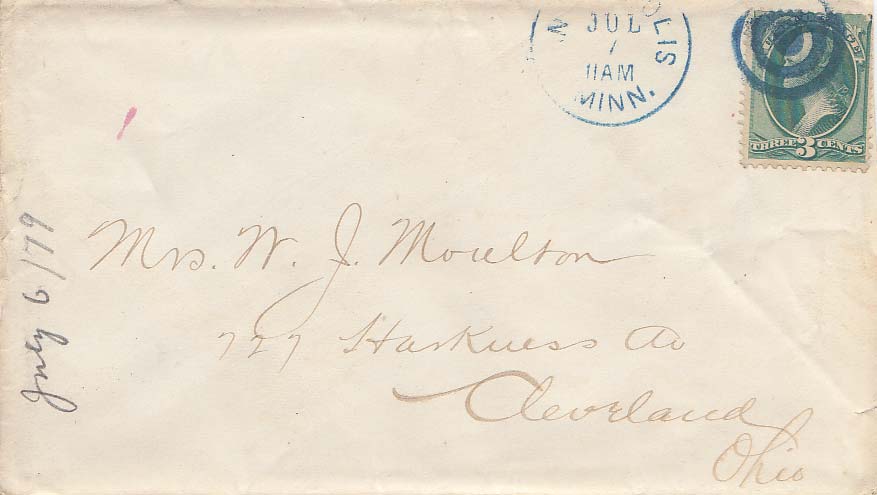 N OLIS
JUL
7
11AM
MINN.
THREE 3 CENTS
July 6/79
Mrs. W. J. Moulton
727 Harkness Av
Cleveland
Ohio